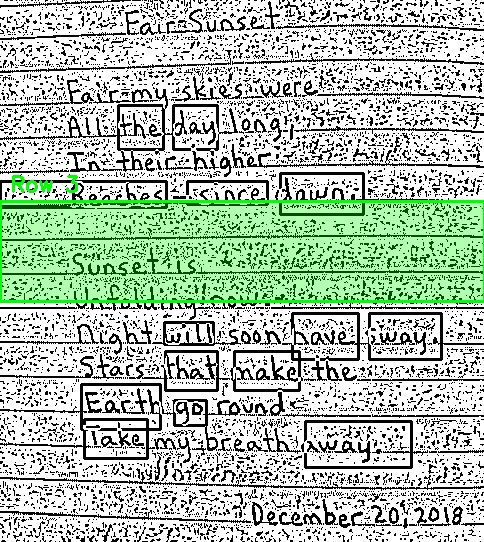 Fair Sunset
Fair my skies were
All the day long,
In their higher
Row 3
Reaches - since dawn.
Sunset is
Unfolding now.
Night will soon have sway.
Stars that make the
Earth go round
Take my breath away.
December 20, 2018